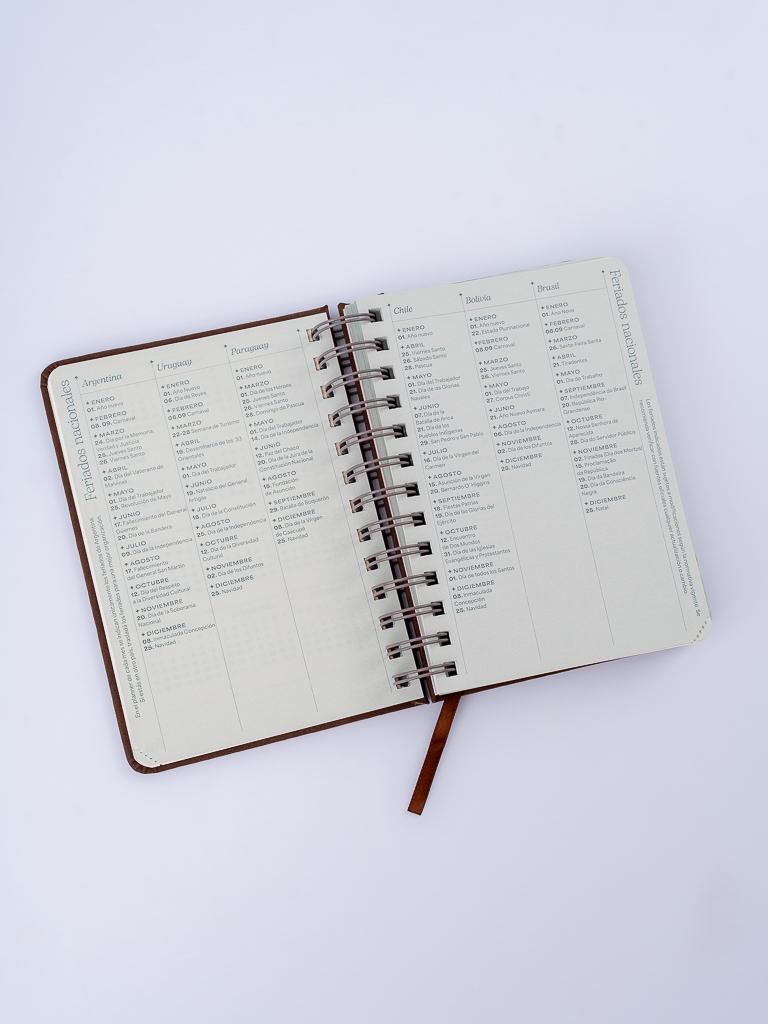 Feriados nacionales
Argentina
✦ ENERO
01. Año nuevo
✦ FEBRERO
08. 09. Carnaval
✦ MARZO
24. Día por la Memoria,
Verdad y Justicia
25. Jueves Santo
26. Viernes Santo
✦ ABRIL
02. Día del Veterano de
Malvinas
✦ MAYO
01. Día del Trabajador
25. Revolución de Mayo
✦ JUNIO
17. Fallecimiento del General
Güemes
20. Día de la Bandera
✦ JULIO
09. Día de la Independencia
✦ AGOSTO
17. Fallecimiento
del General San Martín
✦ OCTUBRE
12. Día del Respeto
a la Diversidad Cultural
✦ NOVIEMBRE
20. Día de la Soberanía
Nacional
✦ DICIEMBRE
08. Inmaculada Concepción
25. Navidad
Uruguay
✦ ENERO
01. Año Nuevo
06. Día de Reyes
✦ FEBRERO
08.09 Carnaval
✦ MARZO
22-28 Semana de Turismo
✦ ABRIL
19. Desembarco de los 33
Orientales
✦ MAYO
01. Día del Trabajador
✦ JUNIO
19. Natalicio del General
Artigas
✦ JULIO
18. Jura de la Constitución
✦ AGOSTO
25. Día de la Independencia
✦ OCTUBRE
12. Día de la Diversidad
Cultural
✦ NOVIEMBRE
02. Día de los Difuntos
✦ DICIEMBRE
25. Navidad
Paraguay
✦ ENERO
01. Año nuevo
✦ MARZO
01. Día de los Héroes
25. Jueves Santo
26. Viernes Santo
28. Domingo de Pascua
✦ MAYO
01. Día del Trabajador
14. Día de la Independencia
✦ JUNIO
12. Paz del Chaco
20. Día de la Jura de la
Constitución Nacional
✦ AGOSTO
15. Fundación
de Asunción
✦ SEPTIEMBRE
29. Batalla de Boquerón
✦ DICIEMBRE
08. Día de la Virgen
de Caacupé
25. Navidad
En el planner de cada mes se indican únicamente los feriados de Argentina.
Si estás en otro país, trasladá los feriados para una mejor organización.
Chile
✦ ENERO
01. Año nuevo
✦ ABRIL
25. Viernes Santo
26. Sábado Santo
28. Pascua
✦ MAYO
01. Día del Trabajador
21. Día de las Glorias
Navales
✦ JUNIO
07. Día de la
Batalla de Arica
21. Día de los
Pueblos Indígenas
29. San Pedro y San Pablo
✦ JULIO
16. Día de la Virgen del
Carmen
✦ AGOSTO
15. Asunción de la Virgen
20. Bernando O' Higgins
✦ SEPTIEMBRE
18. Fiestas Patrias
19. Día de las Glorias del
Ejército
✦ OCTUBRE
12. Encuentro
de Dos Mundos
31. Día de las Iglesias
Evangélicas y Protestantes
✦ NOVIEMBRE
01. Día de todos los Santos
✦ DICIEMBRE
08. Inmaculada
Concepción
25. Navidad
Bolivia
✦ ENERO
01. Año nuevo
22. Estado Plurinacional
✦ FEBRERO
08.09 Carnaval
✦ MARZO
25. Jueves Santo
26. Viernes Santo
✦ MAYO
01. Día del Trabajo
27. Corpus Christi
✦ JUNIO
21. Año Nuevo Aymara
✦ AGOSTO
06. Día de la Independencia
✦ NOVIEMBRE
02. Día de los Difuntos
✦ DICIEMBRE
25. Navidad
Brasil
✦ ENERO
01. Ano Novo
✦ FEBRERO
08.09 Carnaval
✦ MARZO
26. Sexta-Feira Santa
✦ ABRIL
21. Tiradentes
✦ MAYO
01. Dia do Trabalho
✦ SEPTIEMBRE
07. Independência do Brasil
20. República Rio-
Grandense
✦ OCTUBRE
12. Nossa Senhora de
Aparecida
28. Dia do Servidor Público
✦ NOVIEMBRE
02. Finados (Dia dos Mortos)
15. Proclamação
da República
19. Dia da Bandeira
20. Dia da Consciência
Negra
✦ DICIEMBRE
25. Natal
Feriados nacionales
Los feriados publicados están sujetos a modificaciones según la normativa vigente. Se
recomienda verificar con fuentes oficiales cualquier actualización o cambio.